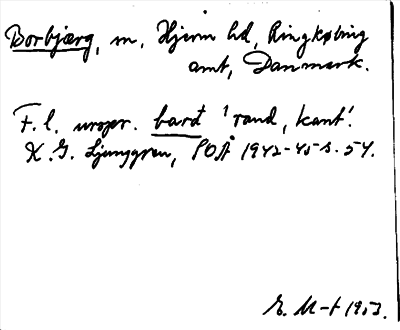 Borbjærg, m, Hjerm hd, Ringkøbing
amt, Danmark.
F. l. urspr. barđ 'rand, kant'.
K. G. Ljunggren, SOÅ 1942-45 s. 54.
E. M-t 1953.